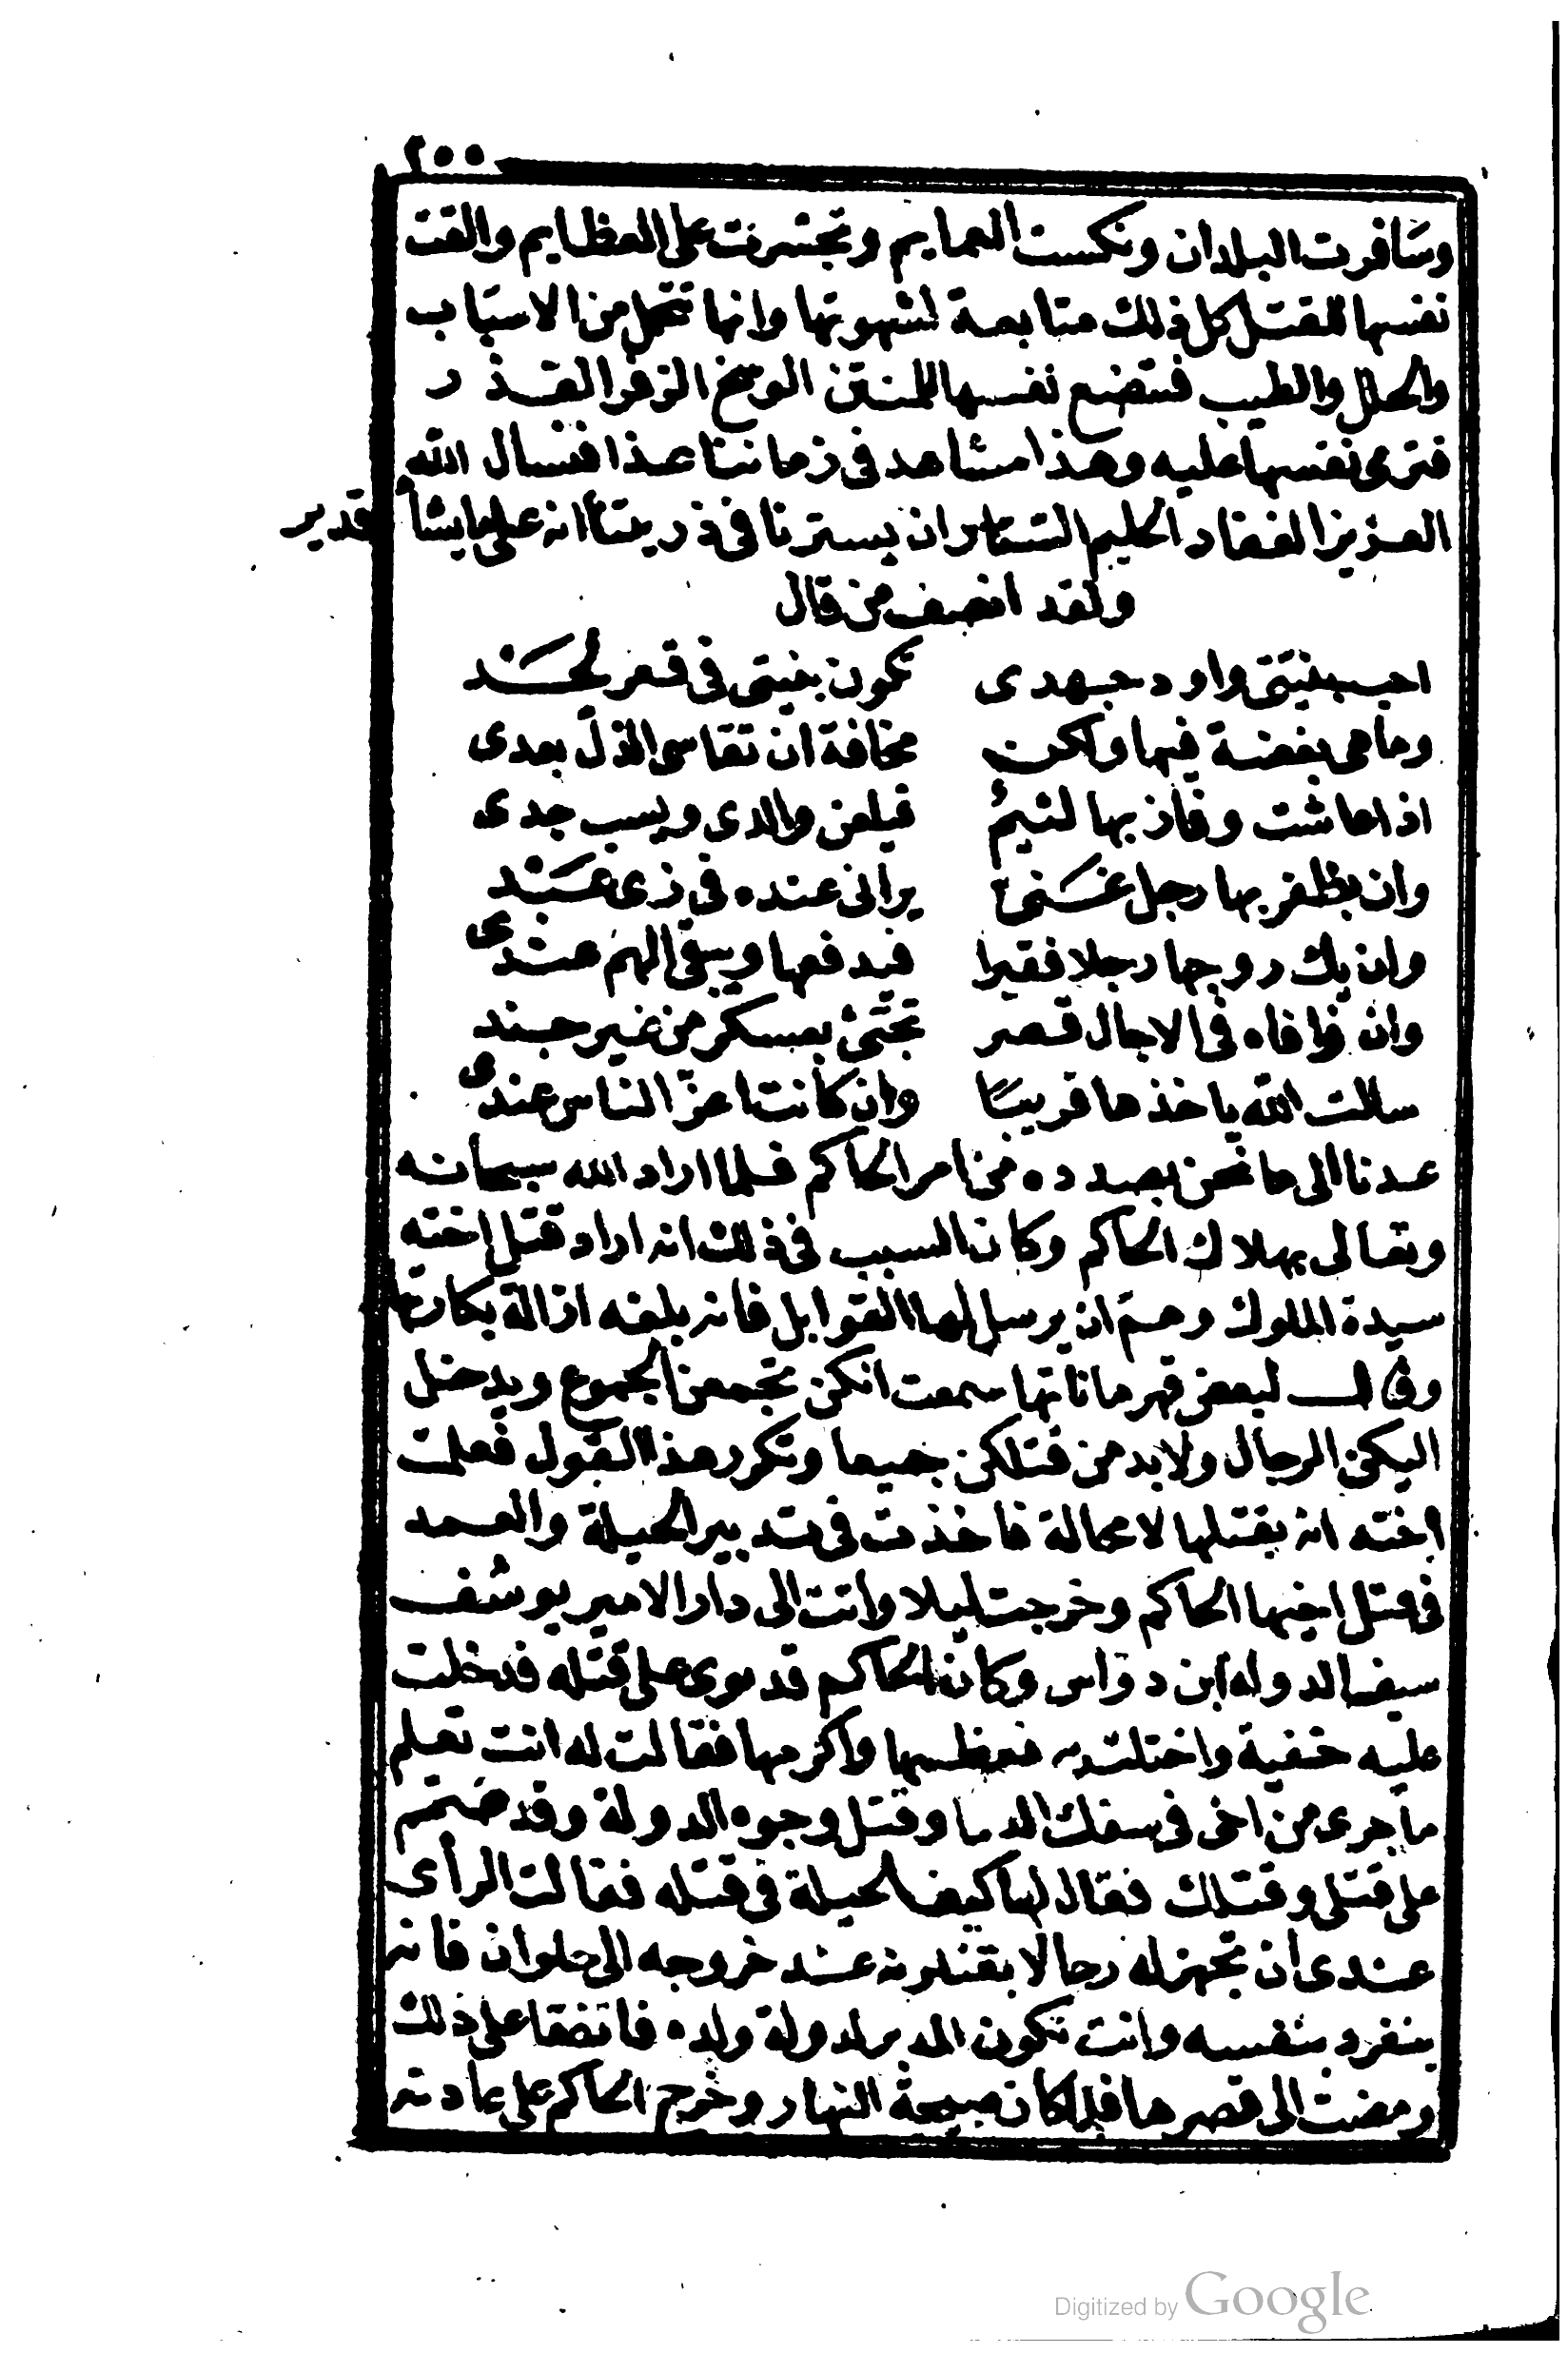 ٢٥٥
وسافرت البلدان ونكست العمايم وتجسرت على العظايم والقت
نفسها للقتل كل ذلك متابعة لشهوتها وانها تتحمل من الاسباب
والحلل والطيب فتضع نفسها للمنتن الوسخ الزفر القذر
فترمى نفسها عليه وهذا مشاهد فى زماننا هذا فنسال الله
العزيز الغفار الحليم الستار ان يسترنا فى ذريتنا انه على ما يشأ قدير
ولقد انصف من قال
احب بنيتى واود جهدى تكون بنيتى فى قعر لحد
وما هى بغضة فيها ولكن مخافة ان تقاسى الذل بعدى
اذا عاشت وفاز بها لئيم فيلعن والدى ويسب جدى
وان يظفر بها رجل غنى يرانى عنده فى زى عبد
وان يك زوجها رجلا فقيرا فيدفعها ويبقى الهم عندى
وان وافاه فى الاجال قصر تجئى بعسكر من غير جند
سالت الله ياخذها قريبا وان كانت اعز الناس عندى
عدنا الى ما نحن بصدده من امر الحاكم فلما اراد الله سبحانه
وتعالى بهلاك الحاكم وكان السبب فى ذلك انه اراد قتل اخته
سيدة الملوك وهم ان يرسل لها القوابل فانه بلغه ازالة بكارتها
وقال لبعض قهرماناتها سمعت انكن تجمعن الجموع ويدخل
اليكن الرجال ولابد من قتلكن جميعا وتكرر هذا القول فعلمت
اخته انه يقتلها لا محالة فاخذت فى تدبير الحيلة والعمد
فى قتل اخيها الحاكم وخرجت ليلا واتت الى دار الامير يوسف
سيف الدوله ابن دواس وكان الحاكم قد نوى على قتله فدخلت
عليه خفية واختلت به فعظمها واكرمها فقالت له انت تعلم
ما جرى من اخى فى سفك الدما وقتل وجوه الدولة وقد صمم
على قتلى وقتلك فقال لها كيف الحيلة فى قتله فقالت الرأى
عندى ان تجهز له رجالا يقتلونه عند خروجه الى حلوان فانه
ينفرد بنفسه وانت تكون المدبر لدولة ولده فاتفقا على ذلك
ومضت الى قصرها فلما كان صبيحة النهار وخرج الحاكم على عادته
Digitized by Google